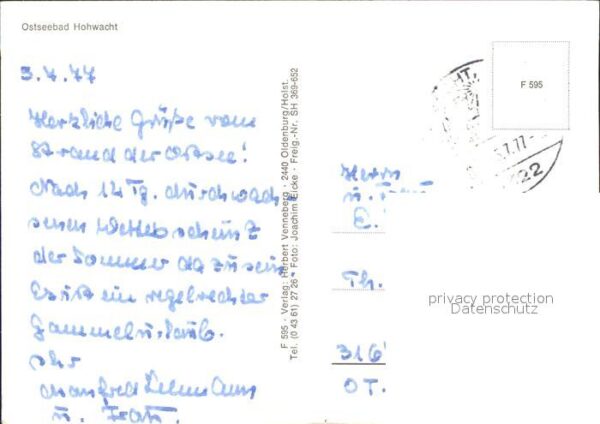 Ostseebad Hohwacht
3.7.77
Herzliche Grüße vom
Strand der Ostsee!
Nach 14 Tg. durchwach
senen Wetter scheint
der Sommer da zu sein
Es ist ein regelrechter
Gammelurlaub.
Ihr
Manfred
u. Frau.
F 595 · Verlag: Herbert Venneberg · 2440 Oldenburg/Holst.
Tel. (0 43 61) 27 26 * Foto: Joachim Eicke · Freig.-Nr. SH 369-652
F 595
.7.77
22
Herrn
u. Frau
E.
Th.
316
OT.
privacy protection
Datenschutz